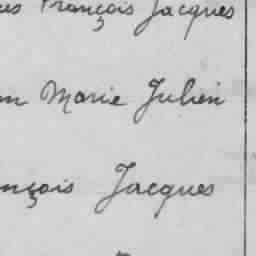 François Jacques
Marie Julien
Jacques